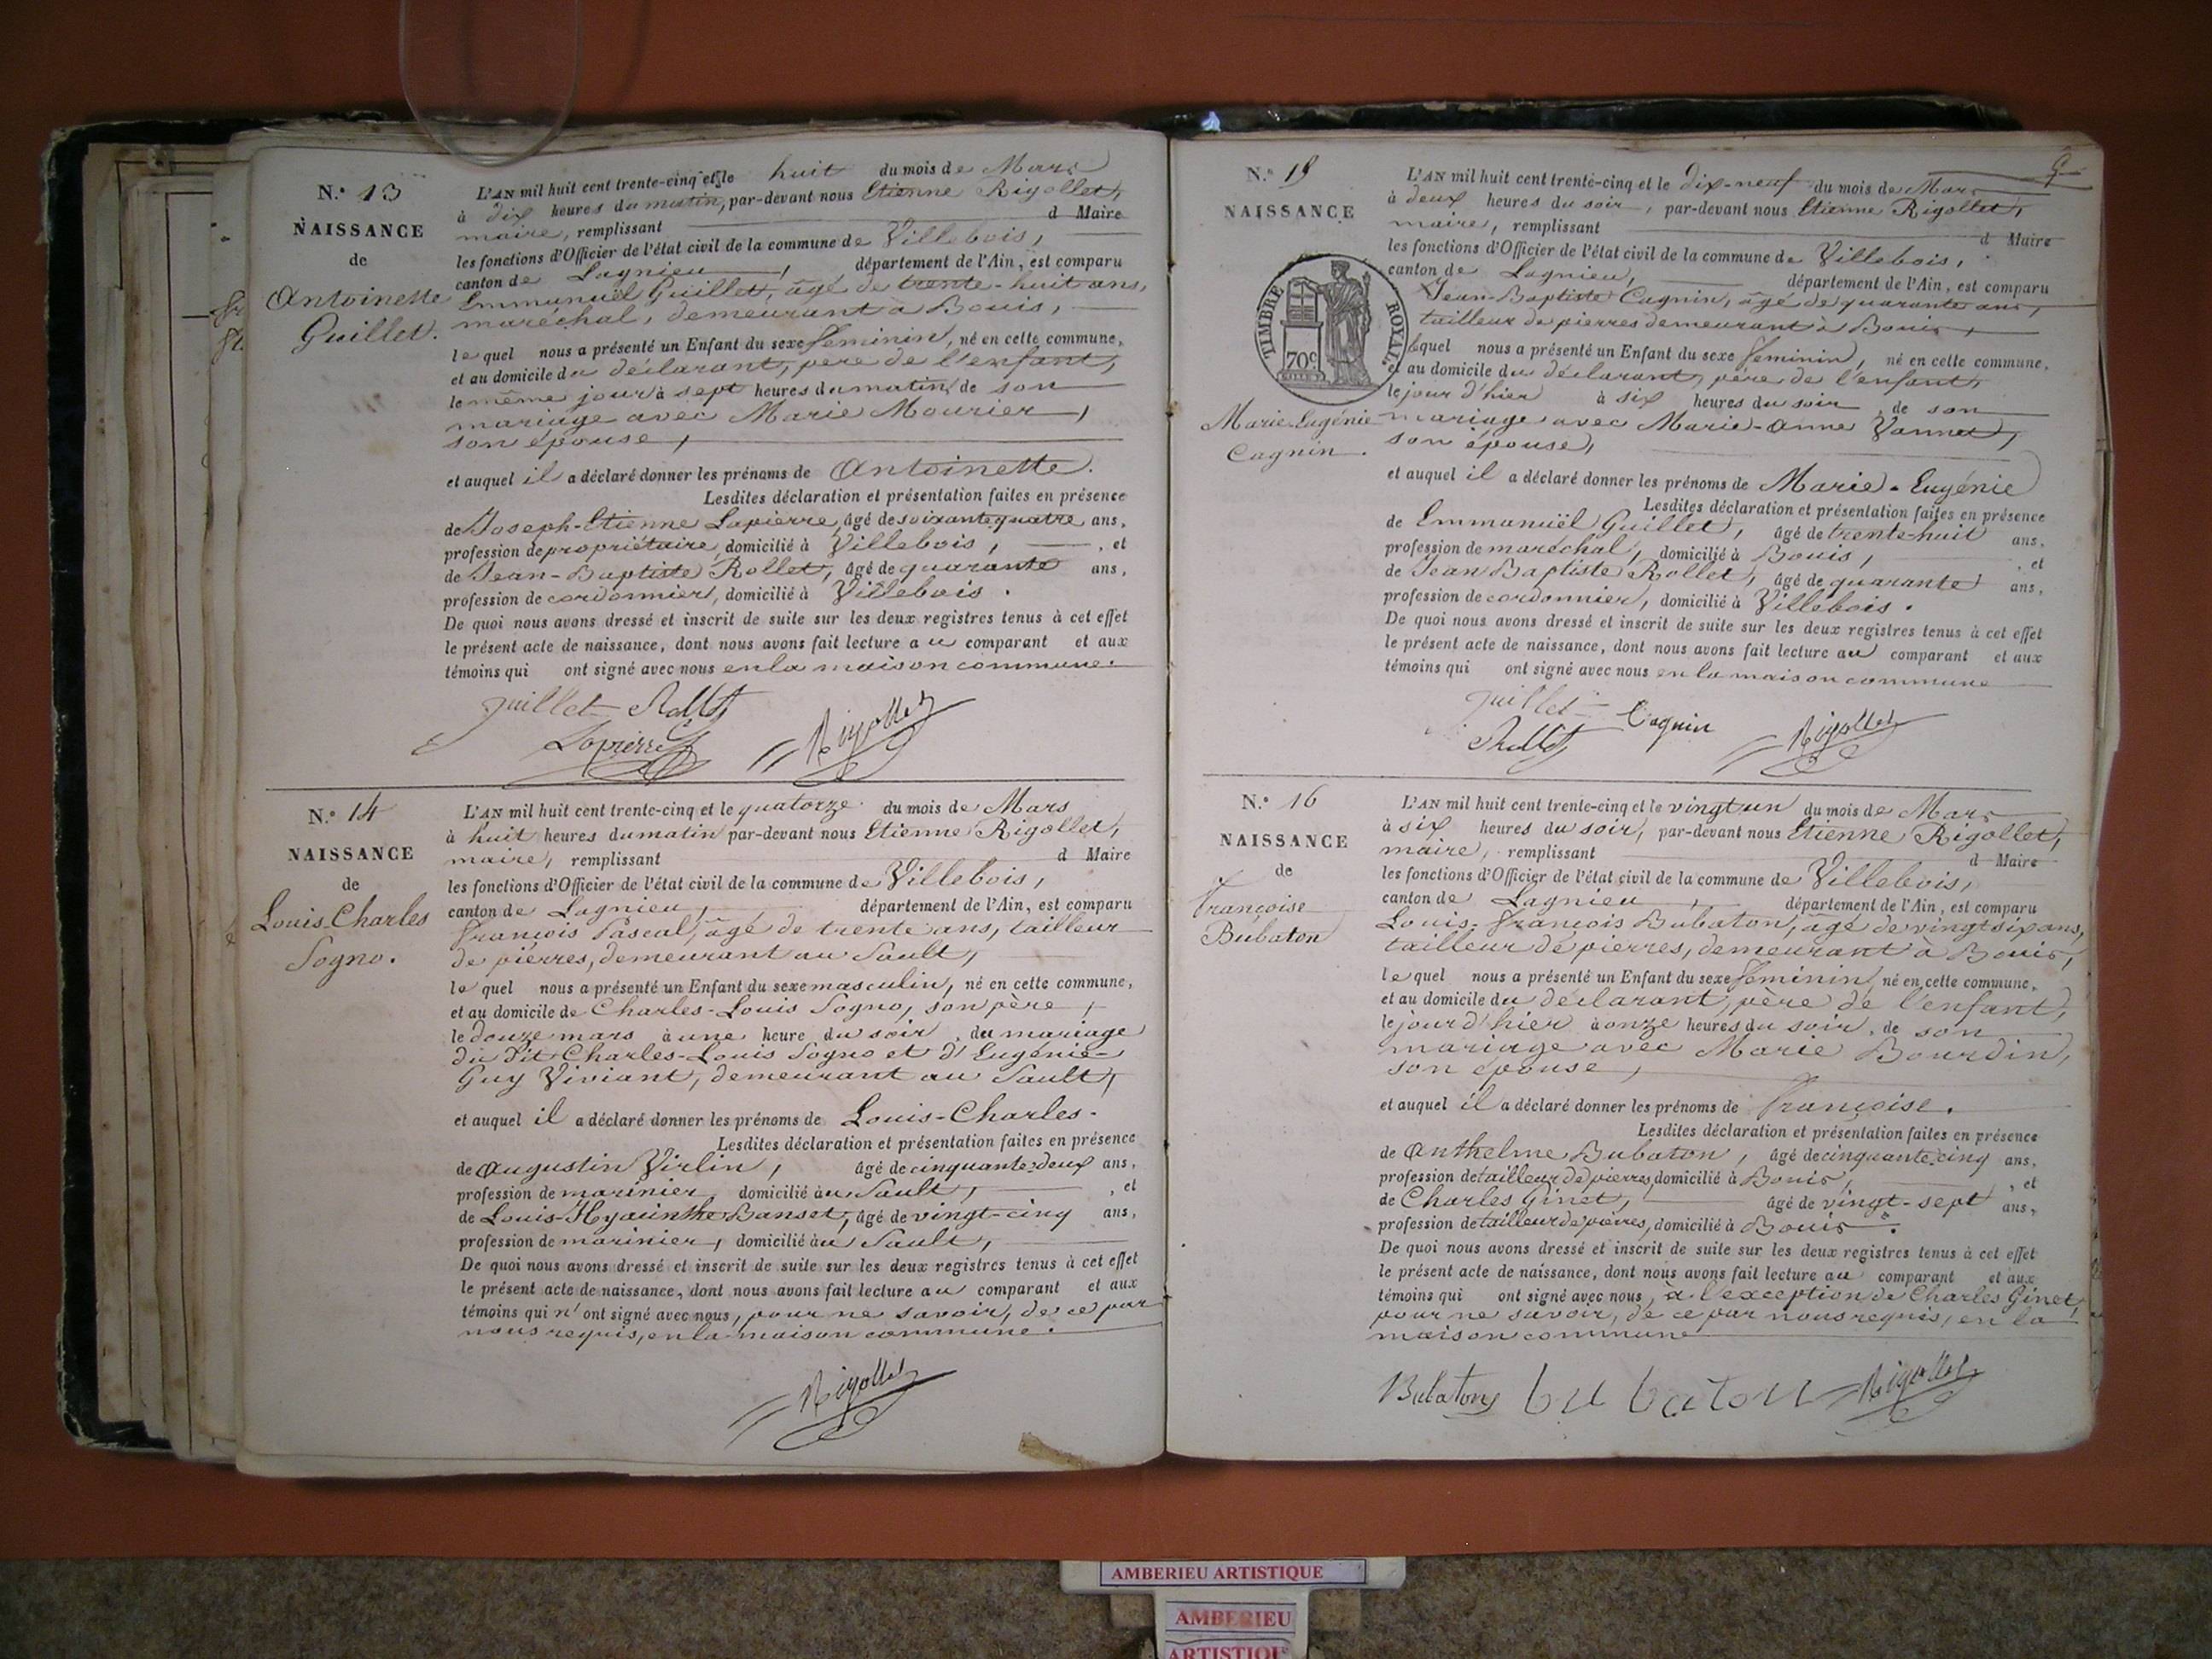 N.° 13
NAISSANCE
de
Antoinette
Guillet.
L'AN mil huit cent trente-cinq et le huit du mois de Mars
à dix heures du matin, par-devant nous Etienne Rigollet,
maire, remplissant d Maire
les fonctions d'Officier de l'état civil de la commune de Villebois,
canton de Lagnieu, département de l'Ain, est comparu
Emmanuël Guillet, âgé de trente-huit ans,
maréchal, demeurant à Bouis,
lequel nous a présenté un Enfant du sexe feminin, né en cette commune,
et au domicile du déclarant, père de l'enfant,
le même jour à sept heures du matin, de son
mariage avec Marie Mourier,
son épouse,
et auquel il a déclaré donner les prénoms de Antoinette.
Lesdites déclaration et présentation faites en présence
de Joseph-Etienne Lapierre, âgé de soixante quatre ans,
profession de propriétaire, domicilié à Villebois, , et
de Jean-Baptiste Rollet, âgé de quarante ans,
profession de cordonnier, domicilié à Villebois.
De quoi nous avons dressé et inscrit de suite sur les deux registres tenus à cet effet
le présent acte de naissance, dont nous avons fait lecture au comparant et aux
témoins qui ont signé avec nous en la maison commune.
guillet Rollet
Lapierre Rigollet
N.° 14
NAISSANCE
de
Louis-Charles
Sogno.
L'AN mil huit cent trente-cinq et le quatorze du mois de Mars
à huit heures du matin par-devant nous Etienne Rigollet,
maire, remplissant d Maire
les fonctions d'Officier de l'état civil de la commune de Villebois,
canton de Lagnieu, département de l'Ain, est comparu
françois Pascal, âgé de trente ans, tailleur
de pierres, demeurant au Sault,
lequel nous a présenté un Enfant du sexe masculin, né en cette commune,
et au domicile de Charles-Louis Sogno, son père,
le douze mars à une heure du soir, du mariage
du dit Charles-Louis Sogno et d'Eugénie
Guy Viviant, demeurant au Sault,
et auquel il a déclaré donner les prénoms de Louis-Charles.
Lesdites déclaration et présentation faites en présence
de Augustin Virlin, âgé de cinquante-deux ans,
profession de marinier, domicilié au Sault, , et
de Louis-Hyacinthe Banset, âgé de vingt-cinq ans,
profession de marinier, domicilié au Sault,
De quoi nous avons dressé et inscrit de suite sur les deux registres tenus à cet effet
le présent acte de naissance, dont nous avons fait lecture au comparant et aux
témoins qui n'ont signé avec nous, pour ne savoir, de ce par
nous requis, en la maison commune.
Rigollet
N.° 15
NAISSANCE
TIMBRE ROYAL
70c
Marie-Eugénie
Cagnin.
L'AN mil huit cent trente-cinq et le dix-neuf du mois de Mars
à deux heures du soir, par-devant nous Etienne Rigollet,
maire, remplissant d Maire
les fonctions d'Officier de l'état civil de la commune de Villebois,
canton de Lagnieu, département de l'Ain, est comparu
Jean-Baptiste Cagnin, âgé de quarante ans,
tailleur de pierres demeurant à Bouis,
lequel nous a présenté un Enfant du sexe feminin, né en cette commune,
et au domicile du déclarant, père de l'enfant,
le jour d'hier à six heures du soir, de son
mariage avec Marie-Anne Vannet,
son épouse,
et auquel il a déclaré donner les prénoms de Marie-Eugénie
Lesdites déclaration et présentation faites en présence
de Emmanuël Guillet, âgé de trente-huit ans,
profession de maréchal, domicilié à Bouis, , et
de Jean Baptiste Rollet, âgé de quarante ans,
profession de cordonnier, domicilié à Villebois.
De quoi nous avons dressé et inscrit de suite sur les deux registres tenus à cet effet
le présent acte de naissance, dont nous avons fait lecture au comparant et aux
témoins qui ont signé avec nous en la maison commune
guillet Cagnin
Rollet Rigollet
N.° 16
NAISSANCE
de
françoise
Bubaton
L'AN mil huit cent trente-cinq et le vingt un du mois de Mars
à six heures du soir, par-devant nous Etienne Rigollet,
maire, remplissant d Maire
les fonctions d'Officier de l'état civil de la commune de Villebois,
canton de Lagnieu, département de l'Ain, est comparu
Louis-françois Bubaton, âgé de vingt six ans,
tailleur de pierres, demeurant à Bouis,
lequel nous a présenté un Enfant du sexe feminin, né en cette commune,
et au domicile du déclarant, père de l'enfant,
le jour d'hier à onze heures du soir, de son
mariage avec Marie Bourdin,
son épouse,
et auquel il a déclaré donner les prénoms de françoise.
Lesdites déclaration et présentation faites en présence
de Anthelme Bubaton, âgé de cinquante-cinq ans,
profession de tailleur de pierres, domicilié à Bouis, , et
de Charles Ginet, âgé de vingt-sept ans,
profession de tailleur de pierres, domicilié à Bouis.
De quoi nous avons dressé et inscrit de suite sur les deux registres tenus à cet effet
le présent acte de naissance, dont nous avons fait lecture au comparant et aux
témoins qui ont signé avec nous, à l'exception de Charles Ginet,
pour ne savoir, de ce par nous requis, en la
maison commune
Bubaton bubaton Rigollet
AMBERIEU ARTISTIQUE
AMBERIEU
ARTISTIQUE